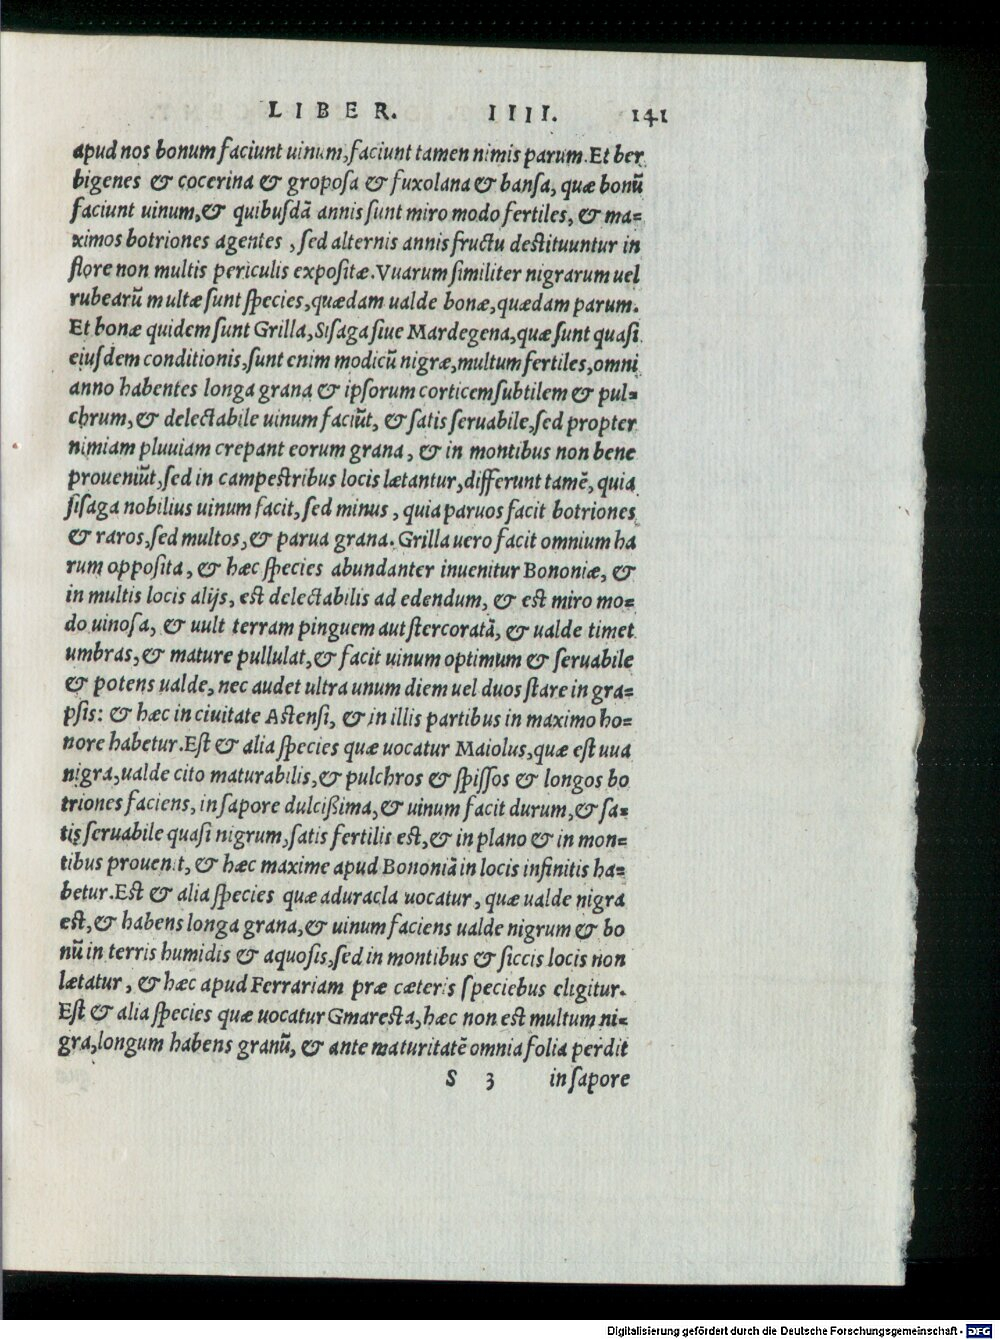 LIBER. IIII. 141
apud nos bonum faciunt uinum, faciunt tamen nimis parum. Et ber
bigenes & cocerina & groposa & fuxolana & bansa, quæ bonũ
faciunt uinum, & quibusdã annis sunt miro modo fertiles, & ma=
ximos botriones agentes, sed alternis annis fructu destituuntur in
flore non multis periculis expositæ. Vuarum similiter nigrarum uel
rubearũ multæ sunt species, quædam ualde bonæ, quædam parum.
Et bonæ quidem sunt Grilla, Sisaga siue Mardegena, quæ sunt quasi
eiusdem conditionis, sunt enim modicũ nigræ, multum fertiles, omni
anno habentes longa grana & ipsorum corticem subtilem & pul=
chrum, & delectabile uinum faciũt, & satis seruabile, sed propter
nimiam pluuiam crepant eorum grana, & in montibus non bene
proueniũt, sed in campestribus locis lætantur, differunt tamẽ, quia
sisaga nobilius uinum facit, sed minus, quia paruos facit botriones
& raros, sed multos, & parua grana. Grilla uero facit omnium ha
rum opposita, & hæc species abundanter inuenitur Bononiæ, &
in multis locis alijs, est delectabilis ad edendum, & est miro mo=
do uinosa, & uult terram pinguem aut stercoratã, & ualde timet
umbras, & mature pullulat, & facit uinum optimum & seruabile
& potens ualde, nec audet ultra unum diem uel duos stare in gra=
psis: & hæc in ciuitate Astensi, & in illis partibus in maximo ho=
nore habetur. Est & alia species quæ uocatur Maiolus, quæ est uua
nigra, ualde cito maturabilis, & pulchros & spissos & longos bo
triones faciens, in sapore dulcißima, & uinum facit durum, & sa=
tis seruabile quasi nigrum, satis fertilis est, & in plano & in mon=
tibus prouenit, & hæc maxime apud Bononiã in locis infinitis ha=
betur. Est & alia species quæ aduracla uocatur, quæ ualde nigra
est, & habens longa grana, & uinum faciens ualde nigrum & bo
nũ in terris humidis & aquosis, sed in montibus & siccis locis non
lætatur, & hæc apud Ferrariam præ cæteris speciebus eligitur.
Est & alia species quæ uocatur Gmaresta, hæc non est multum ni=
gra, longum habens granũ, & ante maturitatẽ omnia folia perdit
S 3 in sapore
Digitalisierung gefördert durch die Deutsche Forschungsgemeinschaft - DFG